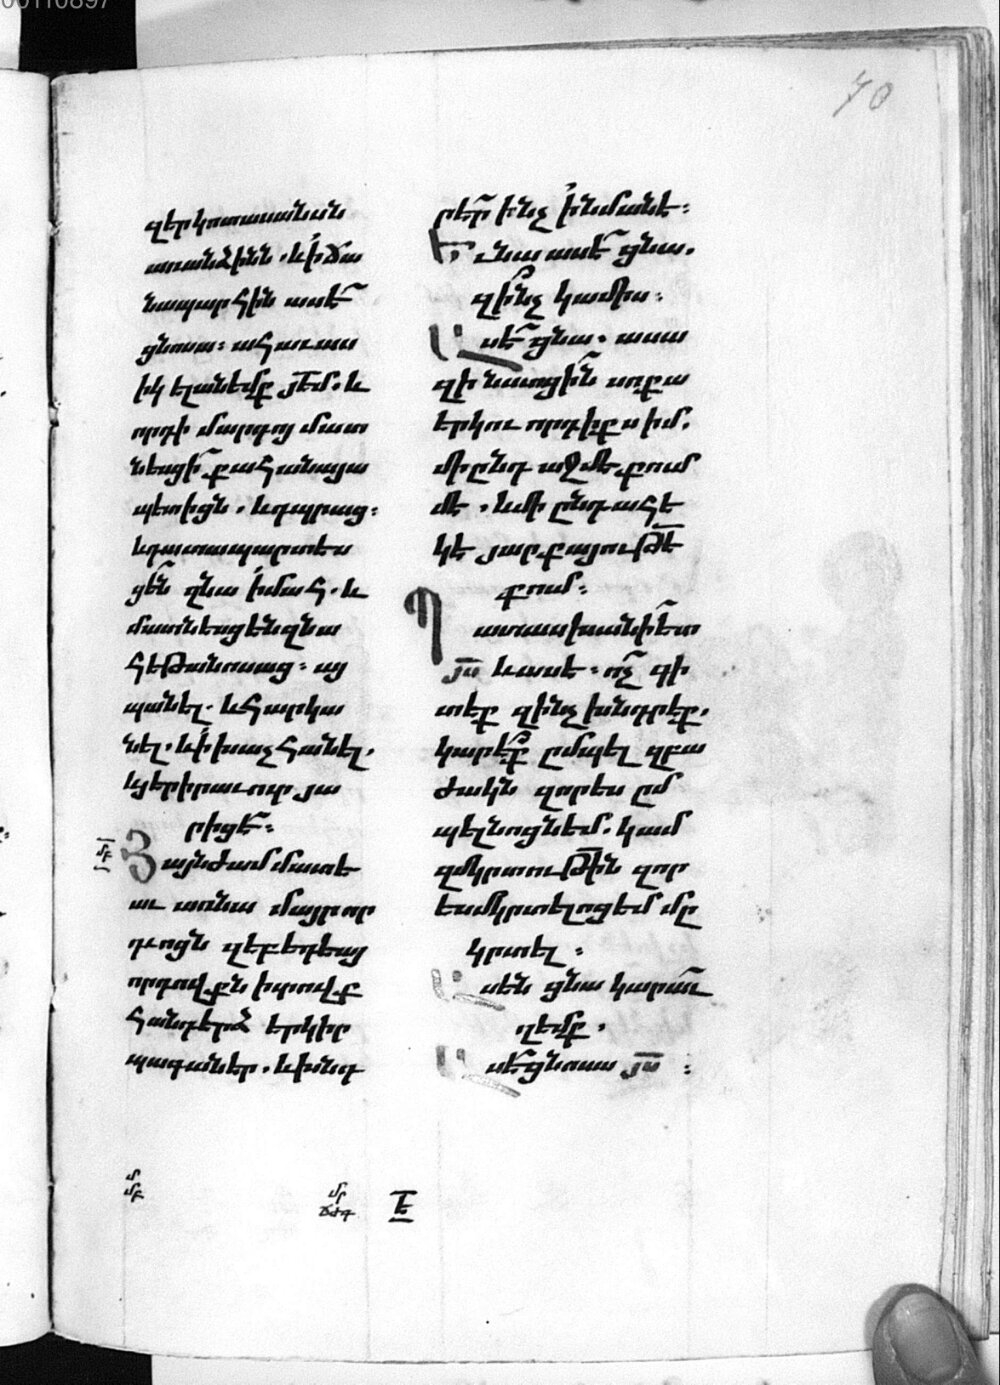 70
զերկոտասանսն
առանձինն. և ՛ի ճա
նապարհին ասէ՛
ցնոսա։ ահաւաս
իկ ելանեմք յե̅մ. և
որդի մարդոյ մատ
նեսցի՛ քահանայա
պետիցն. և դպրաց։
և դատապարտես
ցե՛ն զնա ՛ի մահ. և
մատնեսցեն զնա
հեթանոսաց։ այ
պանել. և հարկա
նել. և ՛ի խաչ հանել.
և յերիր աւուր յա
րիցէ՛։
Յայնժամ մատե
աւ առ նա մայր որ
դւոցն զեբեդեայ
որդովքն իւրովք
հանդերձ երկիր
պագանէր. և խնդ
րէ՛ր ինչ ՛ի նմանէ։
Եւ նա ասէ՛ ցնա.
զի՞նչ կամիս։
Ասէ՛ ցնա. ասա
զի նստցի՛ն սոքա
երկու որդիք ս իմ.
մի ընդ աջմէ քում
մէ. և մի ընդ ահե
կէ յարքայութե̅
քում։
Պատասխանի՛ ետ
յս̅ և ասէ։ ո՛չ գի
տէք զինչ խնդրէք.
կարէ՞ք ըմպել զբա
ժակն զոր ես ըմ
պելոցն եմ. կամ
զմկրտութի̅ն զոր
ես մկրտելոց եմ մը
կրտել։
Ասեն ցնա կարա՛
ղեմք.
Ասէ՛ ցնոսա յս̅։
մբ
մ
մբ
մր
ճժգ
Ե